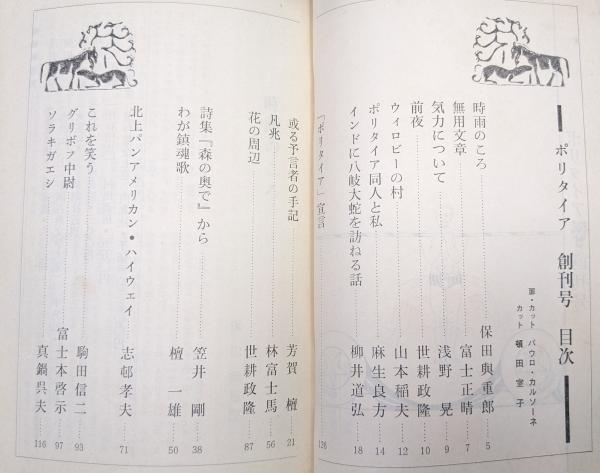 ポリタイア 創刊号 目次
扉・カット パウロ・カルソーネ
カット 頓田室子
時雨のころ 保田與重郎 5
無用文章 富士正晴 7
気力について 浅野晃 9
前夜 世耕政隆 10
ウィロビーの村 山本稲夫 12
ポリタイア同人と私 麻生良方 14
インドに八岐大蛇を訪ねる話 柳井道弘 18
「ポリタイア」宣言 126
或る予言者の手記 芳賀檀 21
凡兆 林富士馬 56
花の周辺 世耕政隆 87
詩集『森の奥で』から 笠井剛 38
わが鎮魂歌 檀一雄 50
北上パンアメリカン・ハイウェイ 志邨孝夫 71
これを笑う 駒田信二 93
グリボフ中尉 富士本啓示 97
ソラキガエシ 真鍋呉夫 116